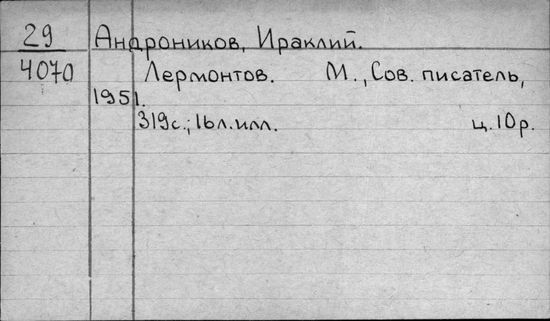 29 Андроников, Ираклий.
4070 Лермонтов. М., Сов. писатель,
1951.
319с.; 16л.илл. ц. 10р.